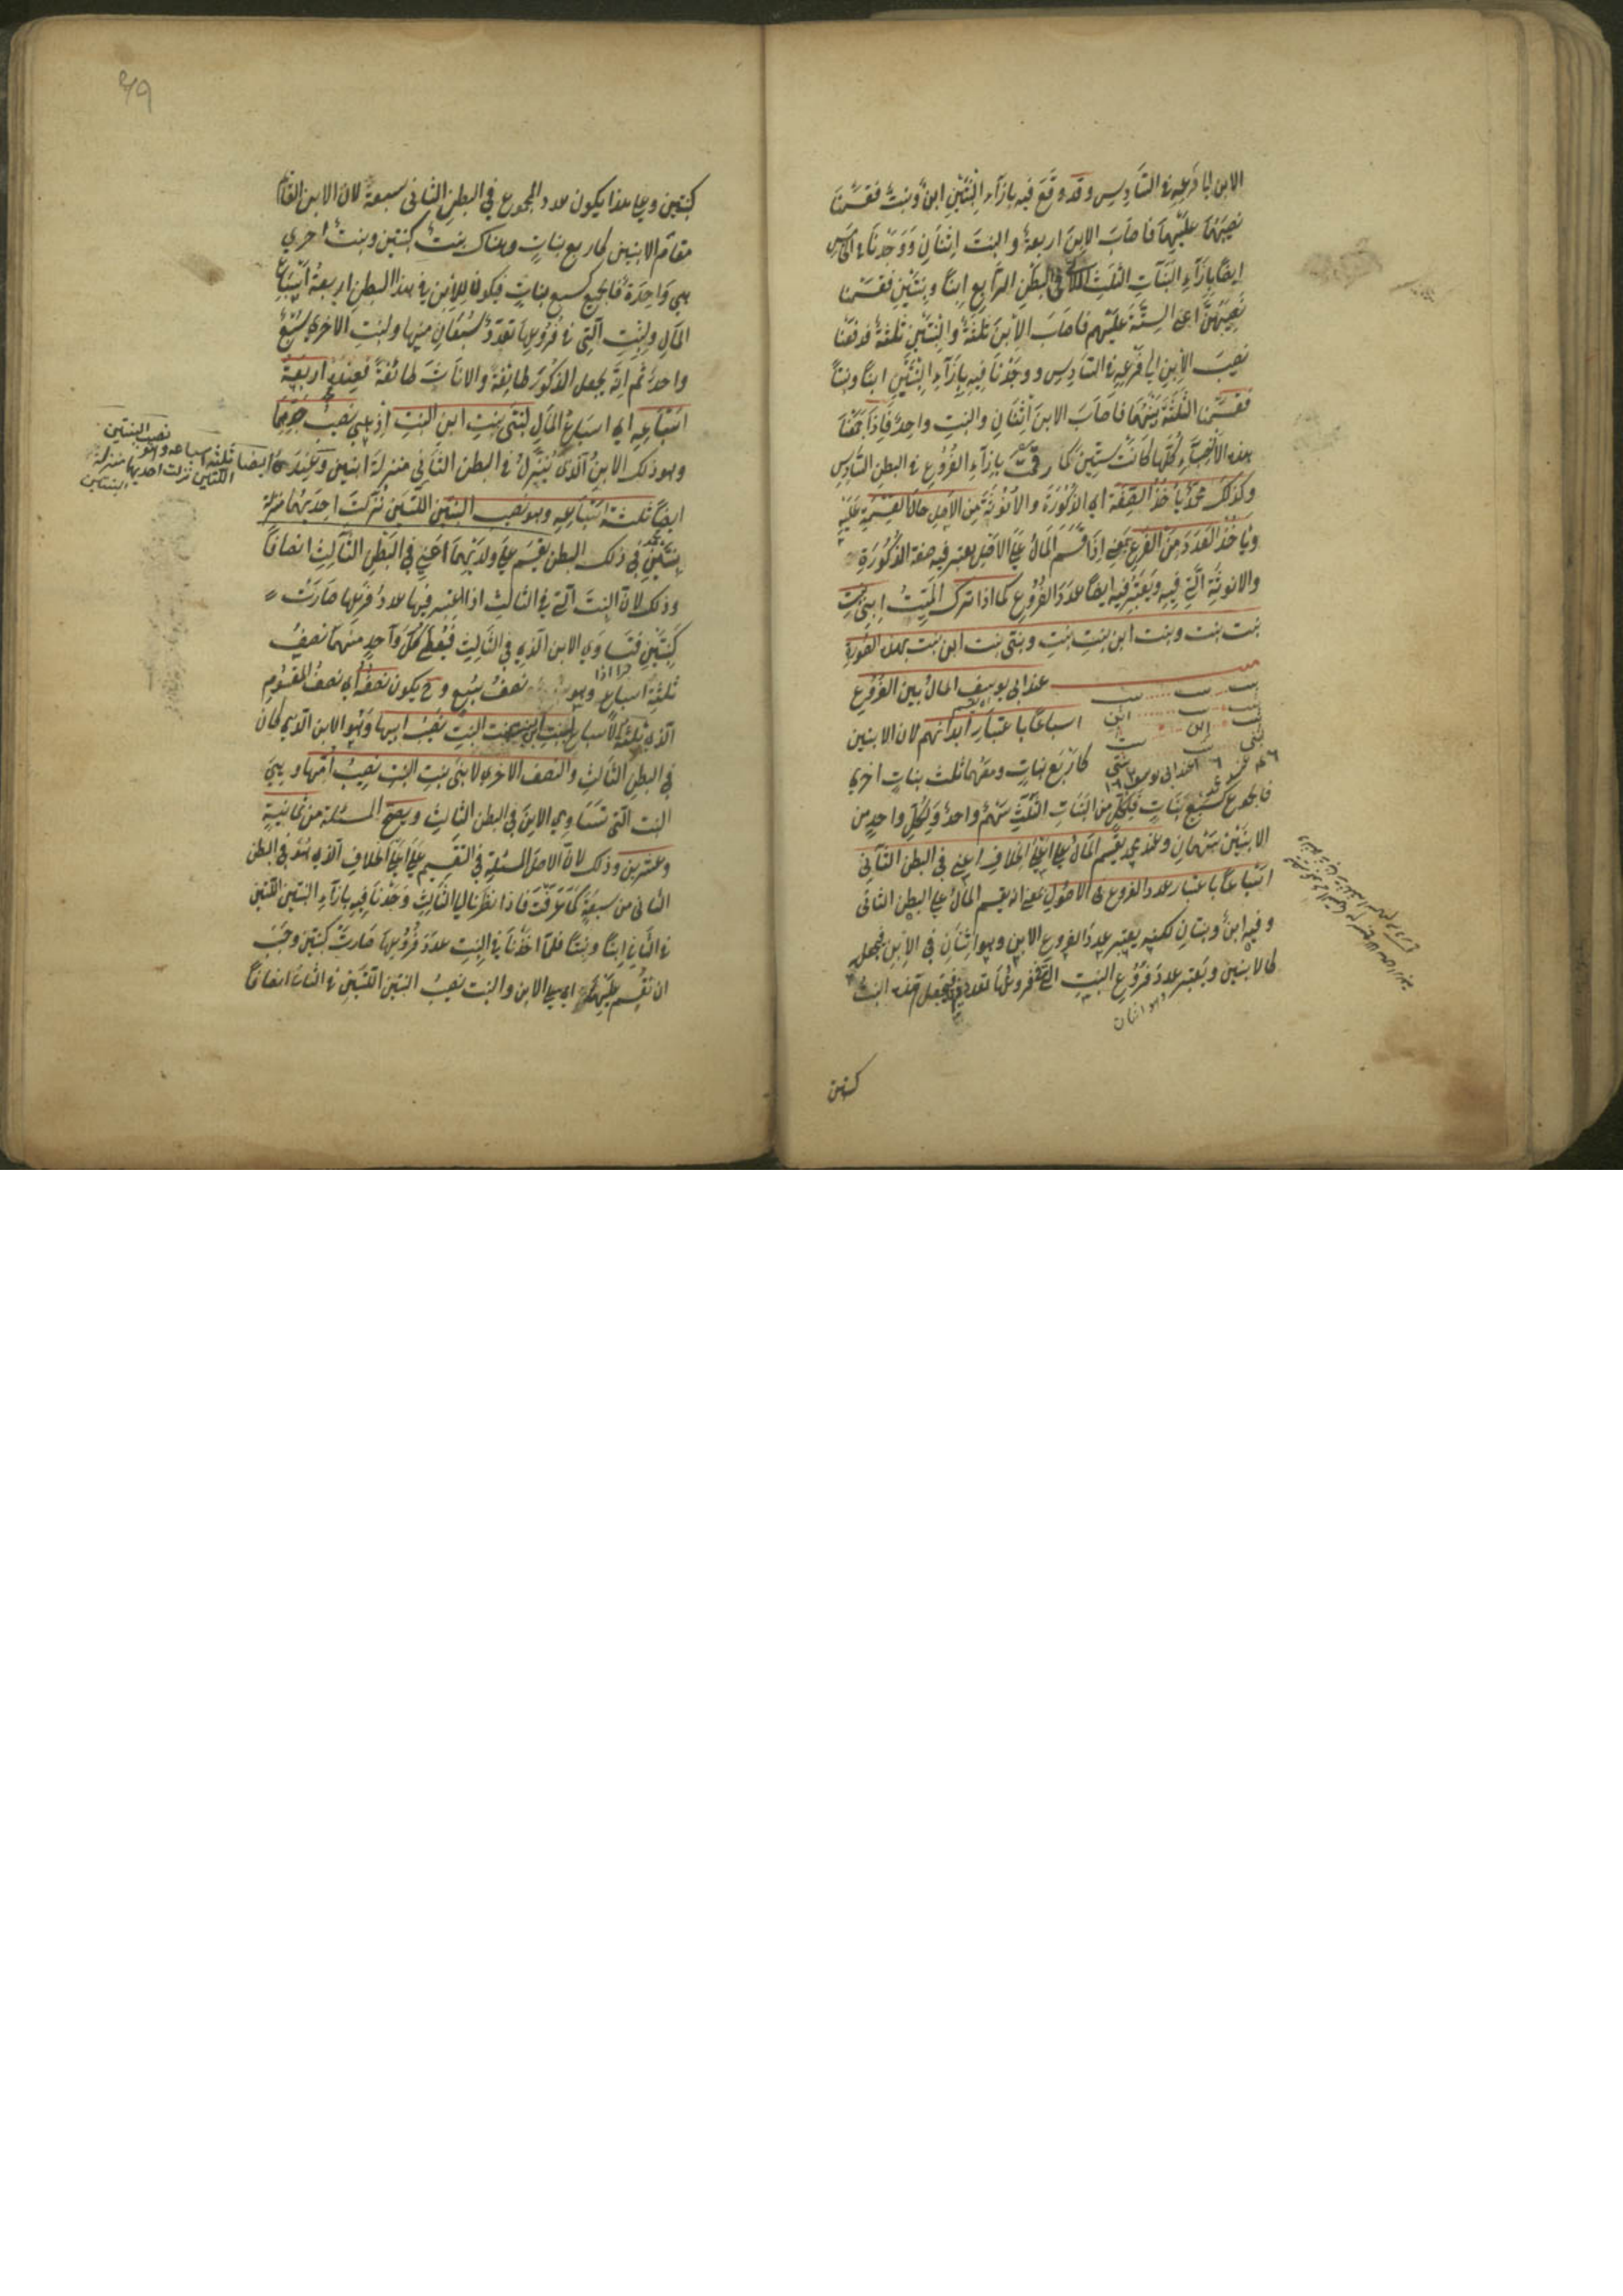 الابن الى فرعه في السادس وقد وقع فيه بازاء البنتين ابن وبنت فقسمنا
نصيبهما عليهما فاصاب الابن اربعة والبنت اثنان ووجدنا في الخامس
ايضا بازاء البنات الثلث اللاتي في البطن الرابع ابنا وبنتين فقسمنا
نصيبهن اعني الستة عليهم فاصاب الابن ثلثة والبنتين ثلثة فدفعنا
نصيب الابن الى فرعه في السادس ووجدنا فيه بازاء البنتين ابنا وبنتا
فقسمنا الثلثة بينهما فاصاب الابن اثنان والبنت واحد فاذا جمعنا
هذه الانصباء كلها كانت ستين كما رقمت بازاء الفروع في البطن السادس
وكذلك محمد ياخذ الصفة اي الذكورة والانوثة من الاصل حال القسمة عليه
وياخذ العدد من الفرع بمعنى اذا قسم المال على الاصل يعتبر فيه صفة الذكورة
والانوثة التي فيه ويعتبر فيه ايضا عدد الفروع كما اذا ترك الميت ابني بنت
بنت بنت وبنت ابن بنت بنت وبنتي بنت ابن بنت بهذه الصورة
عند ابي يوسف المال بين الفروع
اسباعا باعتبار ابدانهم لان الابنين
كاربع بنات ومعهما ثلث بنات اخرى
فالمجموع كسبع بنات فلكل من البنات الثلث سهم واحد ولكل واحد من
الابنين سهمان وعند محمد يقسم المال على اعلى الخلاف اعني في البطن الثاني
اسباعا باعتبار عدد الفروع في الاصول يعني انه يقسم المال على البطن الثاني
وفيه ابن وبنتان لكنه يعتبر عدد الفروع الابن وهو اثنان في الابن فيجعل
كالابنين ويعتبر عدد فروع البنت التي في فروعها تعدد فيجعل هذه البنت
وهو اثنان
كبنتين
كبنتين وعلى هذا يكون عدد المجموع في البطن الثاني سبعة لان الابن القائم
مقام الابنين كاربع بنات وهناك بنت كبنتين وبنت اخرى
هي واحدة فالجميع كسبع بنات فيكون للابن في هذا البطن اربعة اسباع
المال ولبنت التي في فروعها تعدد سبعان منها ولبنت الاخرى سبع
واحد ثم انه يجعل الذكور طائفة والاناث طائفة فعند محمد اربعة
اسباعه اي اسباع المال لبنتي بنت ابن البنت اذ هي نصيب جدهما
وهو ذلك الابن الذي ينزل في البطن الثاني منزلة ابنين وعند
ايضا ثلثة اسباعه وهو نصيب البنتين اللتين نزلت احديهما منزلة
بنتين في ذلك البطن يقسم على ولديهما اعني في البطن الثالث انصافا
وذلك لان البنت التي في الثالث اذا اعتبر فيها عدد فرعها صارت
كبنتين فتساوي الابن الذي في الثالث فيعطى كل واحد منهما نصف
ثلثة اسباع وهو نصف سبع وح يكون نصفه اي نصف المقسوم
الذي ثلثة الاسباع لبنت ابن بنت البنت نصيب ابيها وهو الابن الذي كان
في البطن الثالث والنصف الاخر لابني بنت بنت البنت نصيب امهما وهي
البنت التي تساوي الابن في البطن الثالث ويصح المسئلة من ثمانية
وعشرين وذلك لان الاصل المسئلة في التقسيم على اعلى الخلاف الذي هو في البطن
الثاني من سبعة كما عرفت فاذا نظرنا الى الثالث وجدنا فيه بازاء البنتين اللتين
في الثاني ابنا وبنتا فلما اخذنا في البنت عدد فروعها صارت كبنتين وجب
ان نقسم عليهما اي على الابن والبنت نصيب البنتين اللتين في الثاني انصافا